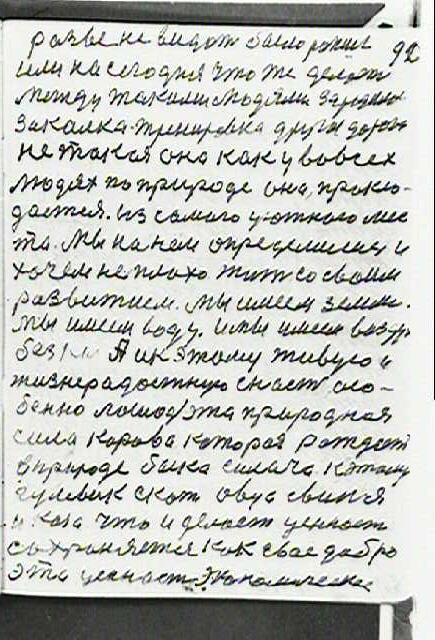 разве не видот было раньше 92
или на сегодня что же делат
между такими людями зародилас
закалка-тренировка другая
не такая она как у вовсех
людях по природе она, проклю-
дается. из самого уютного мес
та. мы на нем определились и
хочем не плохо жит со своим
развитием. мы имеем землю.
мы имеем воду. и мы имеем воздух
без А и к этому живую и
жизнерадостную снаст осо-
бенно лошод эта природная
сила корова которая рождает
в природе быка силача. к этому
гулевик скот овца свиня
и коза что и делает ценност
сохраняется как свае добро
эта ценност экономически